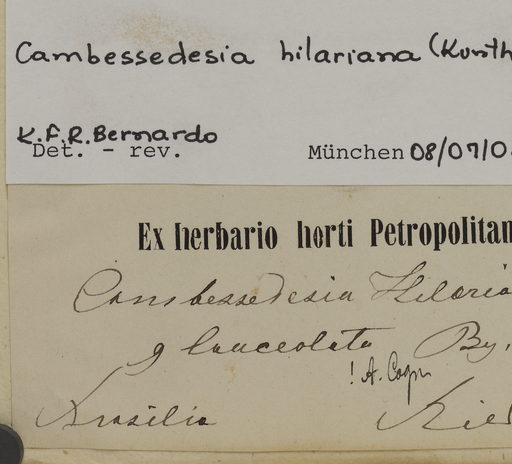 Cambessedesia hilariana (Kunth
K.F.R. Bernardo
Det. - rev. München 08/07/0
Ex herbario horti Petropolitan
Cambessedesia Hilaria
lanceolata
! A. Cogn
Brasilia Ried